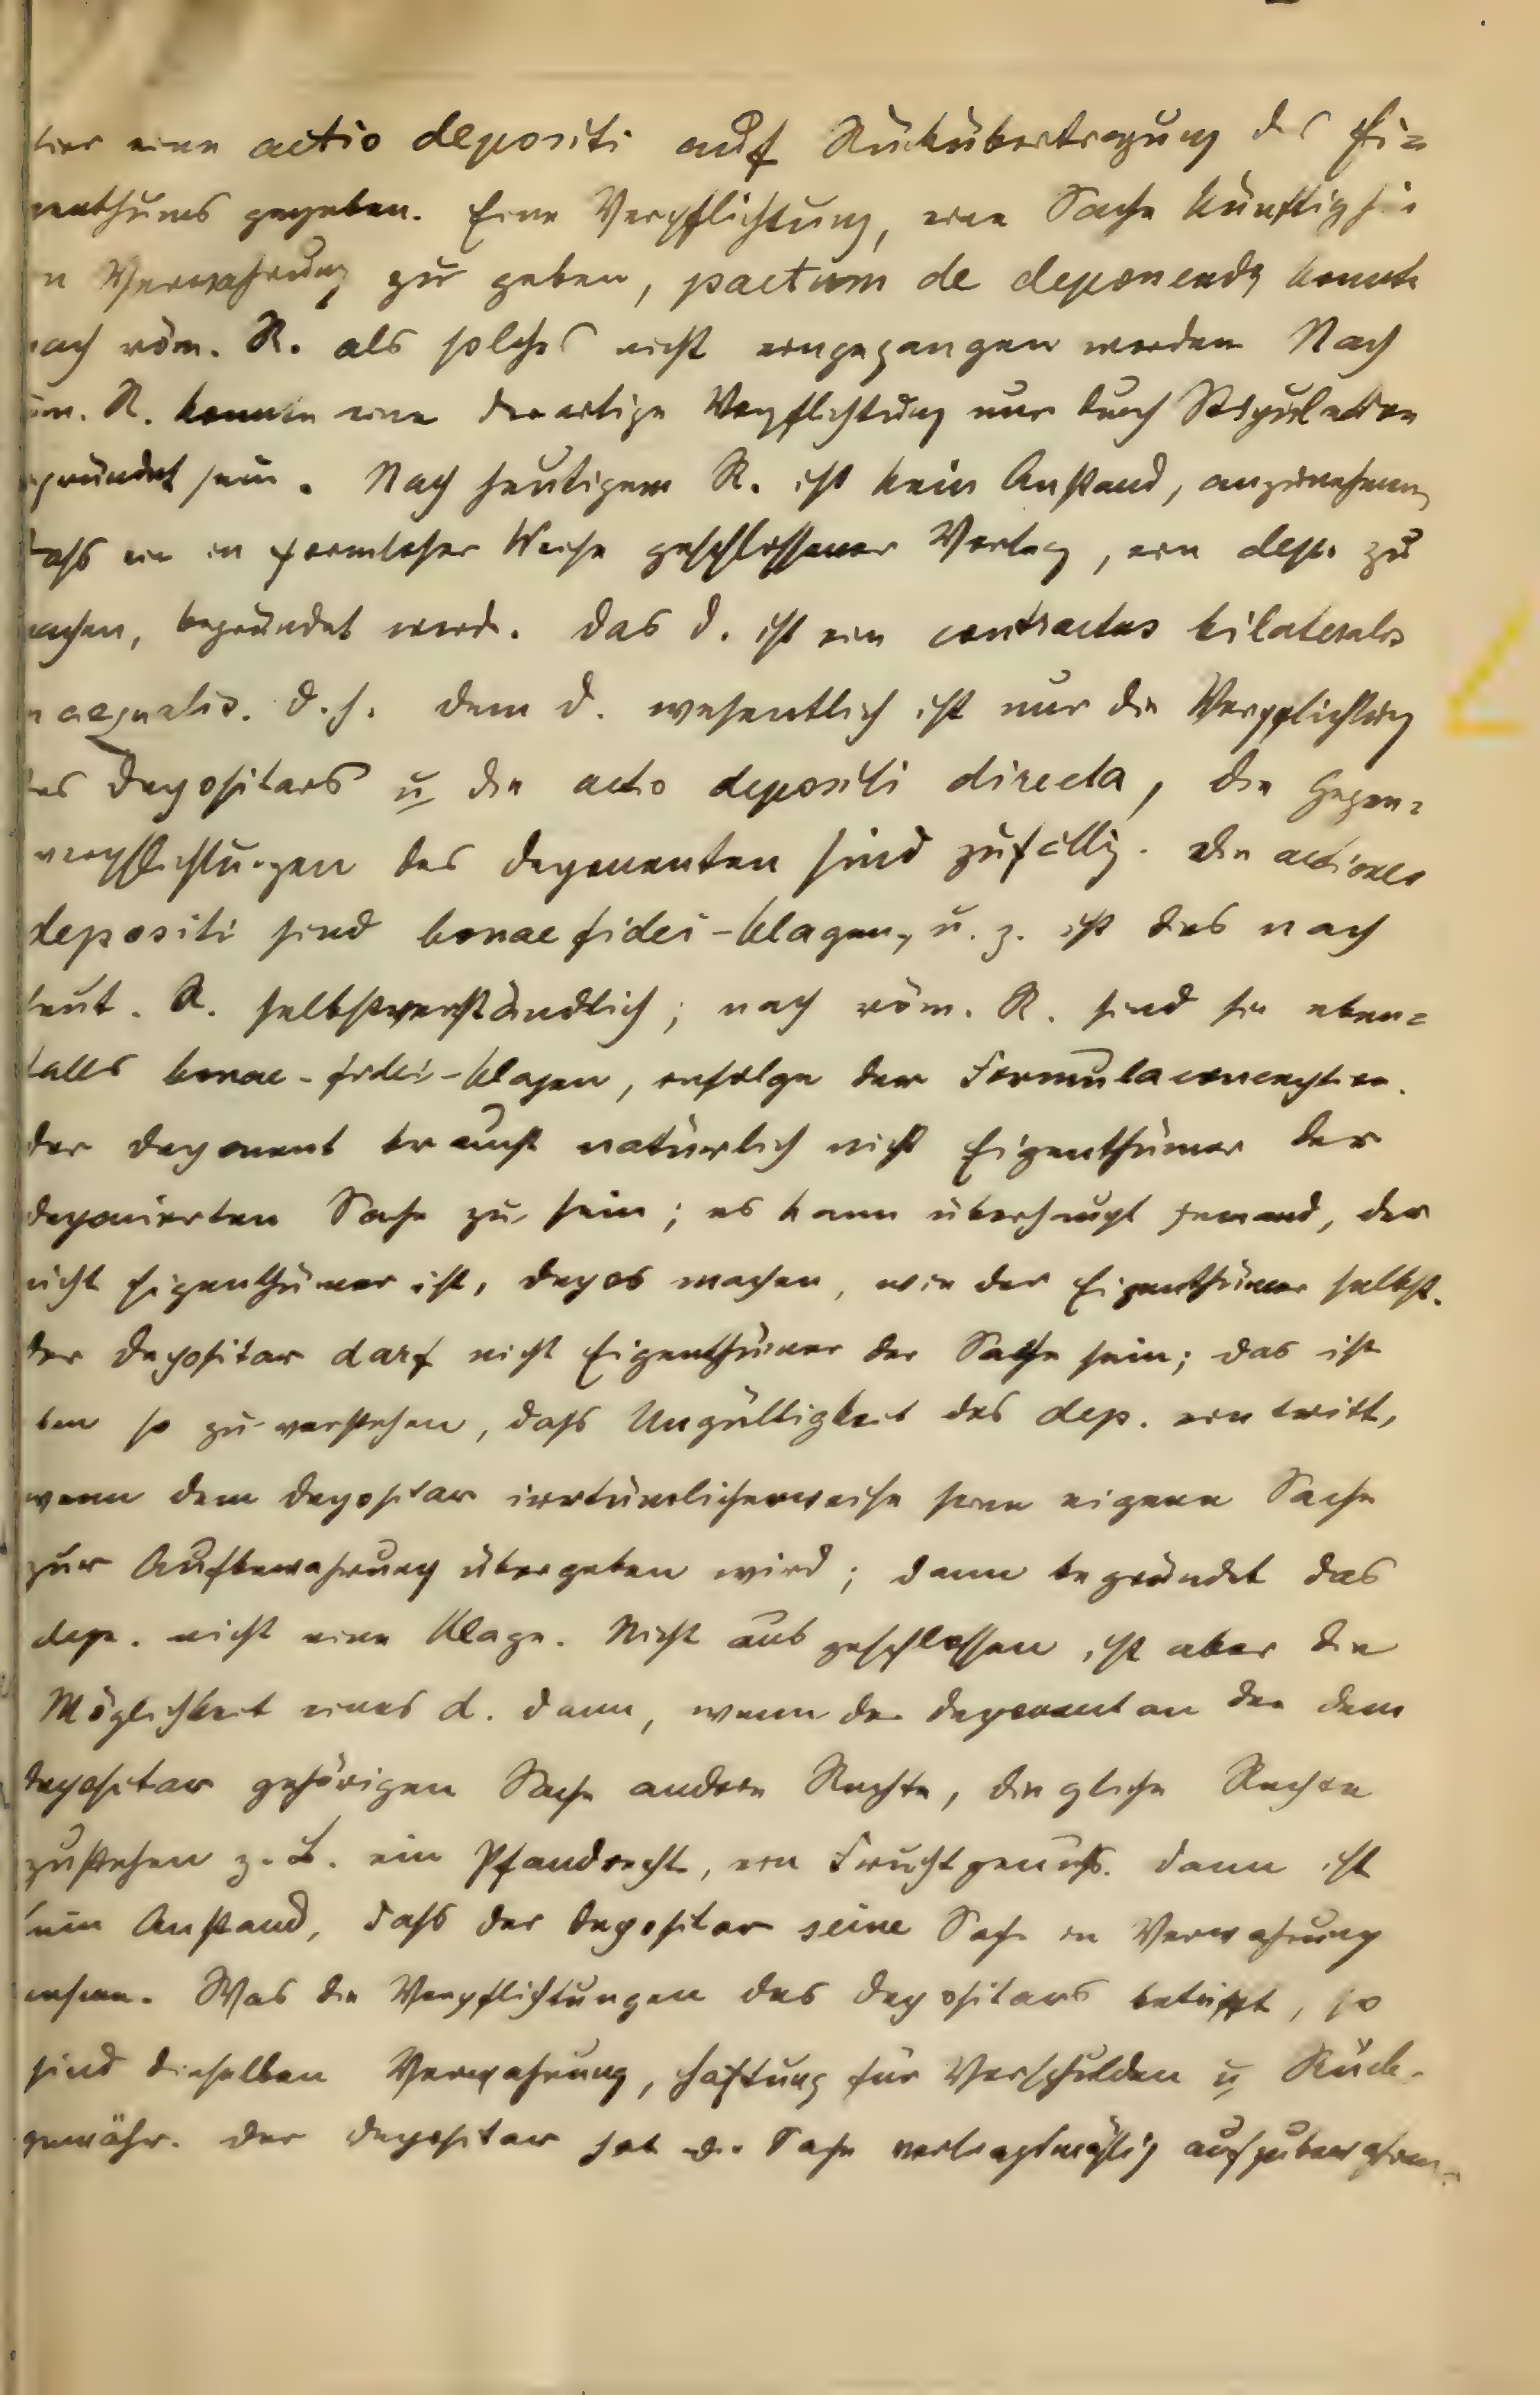 hier eine actio depositi auf Rückübertragung des Ei=
genthums gegeben. Eine Verpflichtung, eine Sache künftighin
in Verwahrung zu geben, pactum de deponendo konnte
nach röm. R. als solches nicht eingegangen werden Nach
röm. R. konnte eine derartige Verpflichtung nur durch Stipulation
begründet sein. Nach heutigem R. ist kein Anstand, anzunehmen,
dass ein in formloser Weise geschlossener Vertrag, ein dep. zu
machen, begründet werde. Das d. ist ein contractus bilateralis
inaequalis. d.h. dem d. wesentlich ist nur die Verpflichtung
des Depositars u die actio depositi directa, die Gegen=
verpflichtungen des Deponenten sind zufällig. Die actiones
depositi sind bonae fidei-Klagen, u. z. ist dies nach
heut. R. selbstverständlich; nach röm. R. sind sie eben=
falls bonae-fidei-Klagen, infolge der Formulaconception.
Der Deponent braucht natürlich nicht Eigenthümer der
deponierten Sache zu sein; es kann überhaupt jemand, der
nicht Eigenthümer ist, depos machen, wie der Eigenthümer selbst.
Der Depositar darf nicht Eigenthümer der Sache sein; das ist
eben so zu verstehen, dass Ungültigkeit des dep. eintritt,
wenn dem Depositar irrtümlicherweise seine eigene Sache
zur Aufbewahrung übergeben wird; dann begründet das
dep. nicht eine Klage. Nicht ausgeschlossen ist aber die
Möglichkeit eines d. dann, wenn der Deponent an der dem
Depositar gehörigen Sache andere Rechte, dingliche Rechte
zustehen z. B. ein Pfandrecht, ein Fruchtgenuss. Dann ist
kein Anstand, dass der Depositar seine Sache in Verwahrung
nehme. Was die Verpflichtungen des Depositars betrifft, so
sind dieselben Verwahrung, Haftung für Verschulden u Rück-
gewähr. Der Depositar hat die Sache vertragsmäßig aufzubewahren.